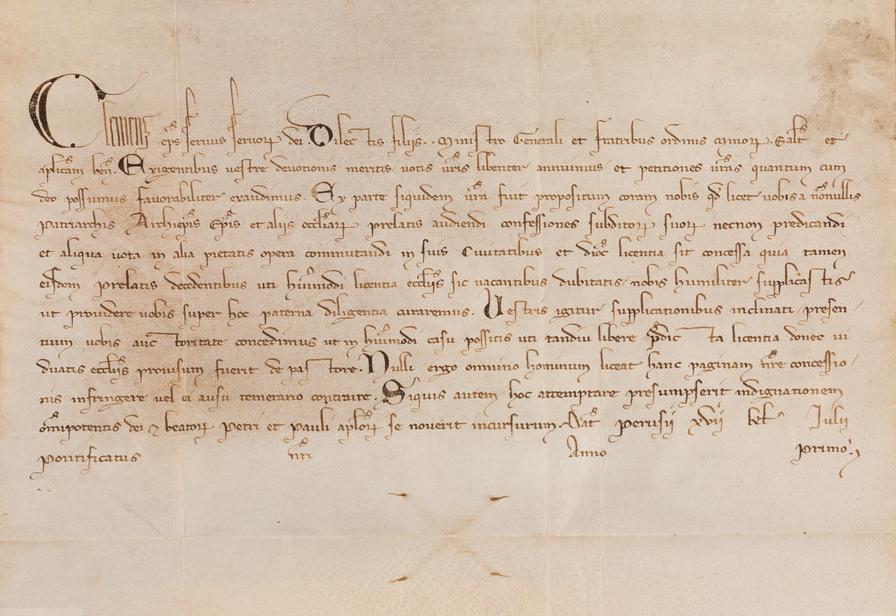 Clemens ep̄s servus servoꝝ dei. Dilectis filijs . . Ministro Generali et fratribus ordinis Minoꝝ. Salt̄ et
aplicam ben̄. Exigentibus vestre devotionis meritis votis vr̄is libenter annuimus et petitiones vr̄as quantum cum
deo possumus favorabiliter exaudimus. Ex parte siquidem vr̄a fuit propositum coram nobis qd̄ licet vobis a nōnullis
Patriarchis Archiep̄is Ep̄is et aliis eccl̄iaꝝ prelatis audiendi confessiones subditoꝝ suoꝝ necnon predicandi
et aliqua vota in alia pietatis opera commutandi in suis Civitatibus et dioc̄ licentia sit concessa quia tamen
eisdem prelatis decedentibus uti huīmodi licentia eccl̄iis sic vacantibus dubitatis nobis humiliter supplicastis
ut providere vobis super hoc paterna diligentia curaremus. Vestris igitur supplicationibus inclinati presen-
tium vobis auctoritate concedimus ut in huīmodi casu possitis uti tandiu libere p̄dicta licentia donec vi
duatis eccl̄iis provisum fuerit de pastore. Nulli ergo omnino hominum liceat hanc paginam nr̄e concessio-
nis infringere vel ei ausu temerario contraire. Siquis autem hoc attemptare presumpserit indignationem
om̄ipotentis dei et beatoꝝ Petri et Pauli apl̄oꝝ se noverit incursurum. Dat̄ Perusii xvii kal̄ Julii
Pontificatus nr̄i Anno Primo.